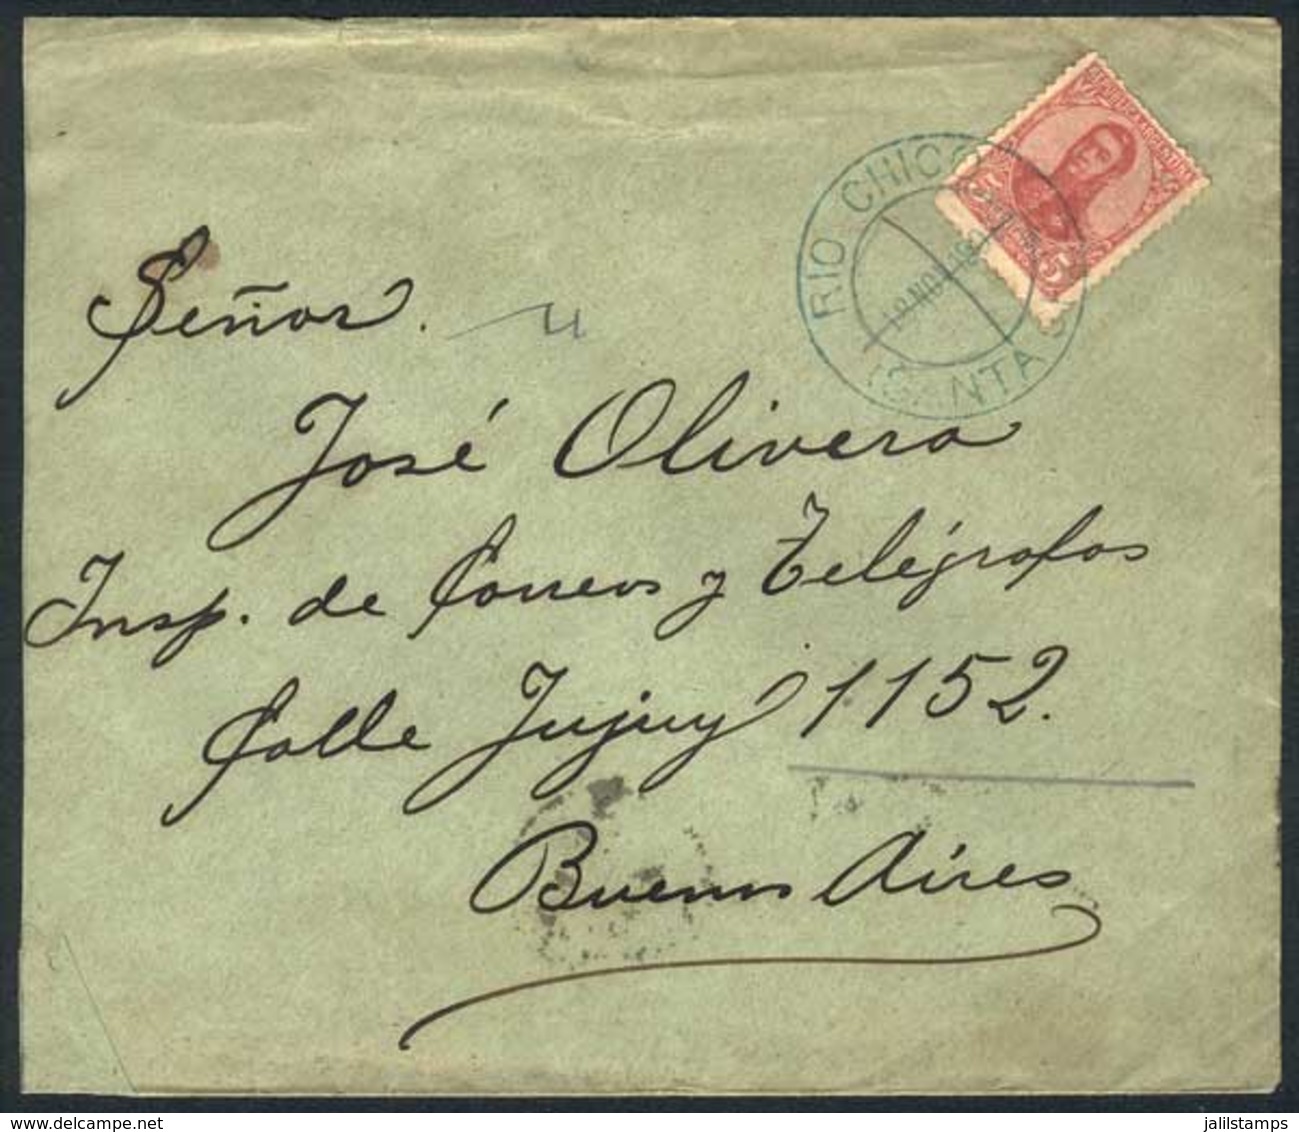 REPUBLICA ARGENTINA
5
RIO CHICO
18 NOV 19
(SANTA
Señor.
José Olivera
Insp. de Correos y Telégrafos
Calle Jujuy 1152.
Buenos Aires
www.delcampe.net
jalilstamps